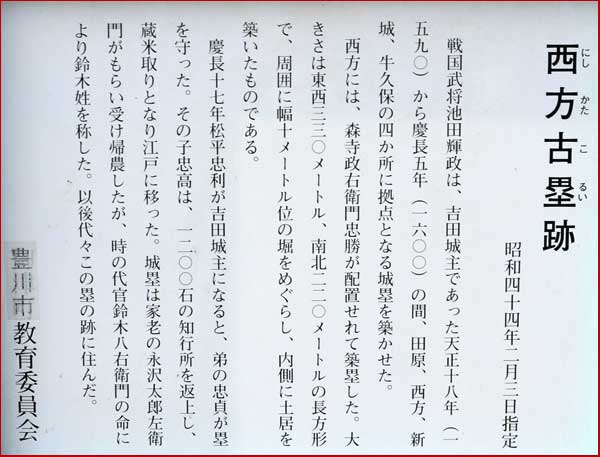 西方古塁跡
にし かた こ るい
昭和四十四年二月三日指定
戦国武将池田輝政は、吉田城主であった天正十八年（一
五九〇）から慶長五年（一六〇〇）の間、田原、西方、新
城、牛久保の四か所に拠点となる城塁を築かせた。
西方には、森寺政右衛門忠勝が配置せれて築塁した。大
きさは東西三三〇メートル、南北二二〇メートルの長方形
で、周囲に幅十メートル位の堀をめぐらし、内側に土居を
築いたものである。
慶長十七年松平忠利が吉田城主になると、弟の忠貞が塁
を守った。その子忠高は、一二〇〇石の知行所を返上し、
蔵米取りとなり江戸に移った。城塁は家老の永沢太郎左衛
門がもらい受け帰農したが、時の代官鈴木八右衛門の命に
より鈴木姓を称した。以後代々この塁の跡に住んだ。
豊川市教育委員会